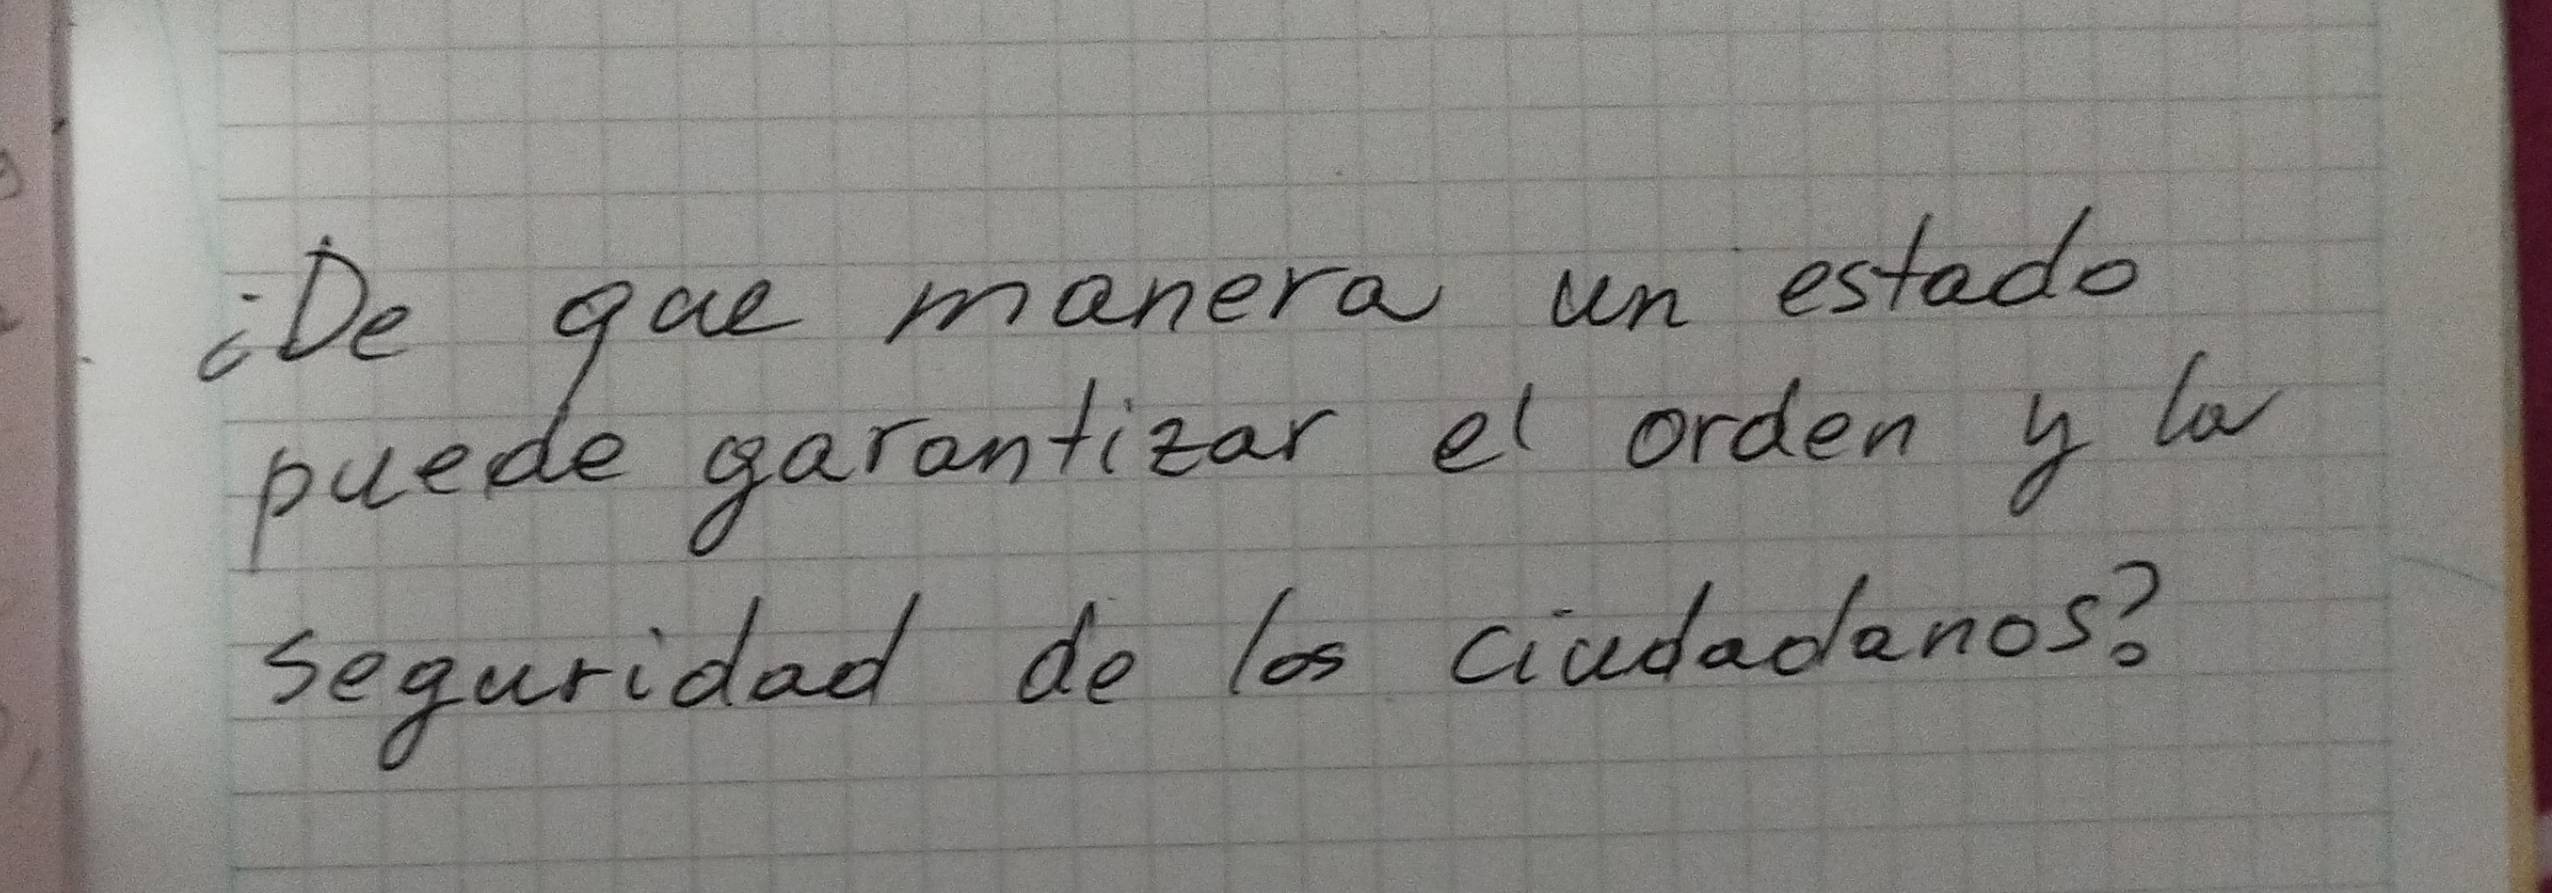 ¿De que manera un estado
puede garantizar el orden y la
seguridad de los ciudadanos?